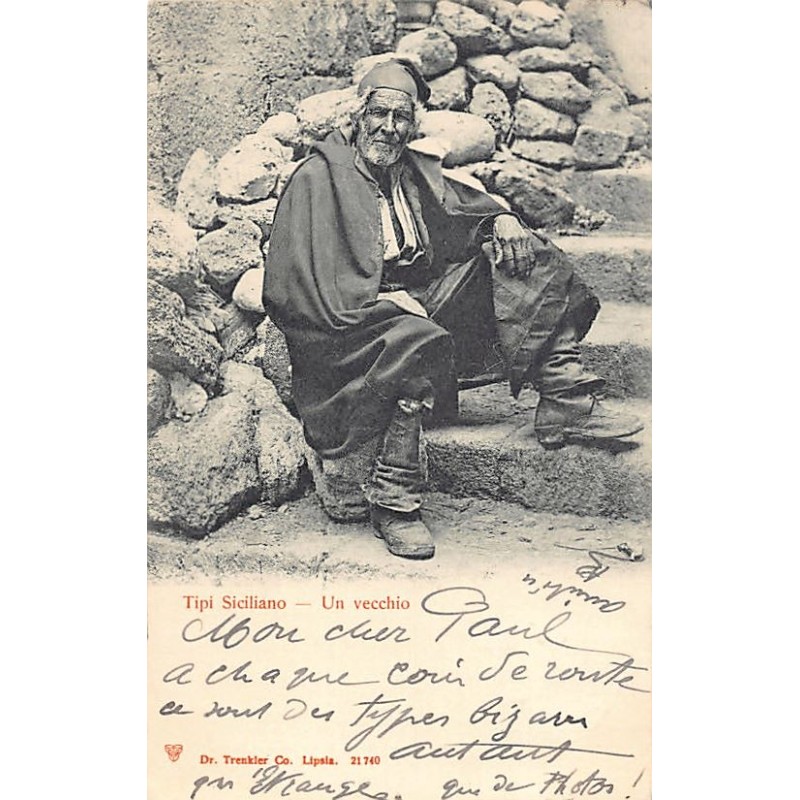 Tipi Siciliano — Un vecchio
Mon cher Paul
a chaque coin de route
ce sont des types bizarre
autant
Dr. Trenkler Co. Lipsia. 21740
qu'étrange. que de Photos!